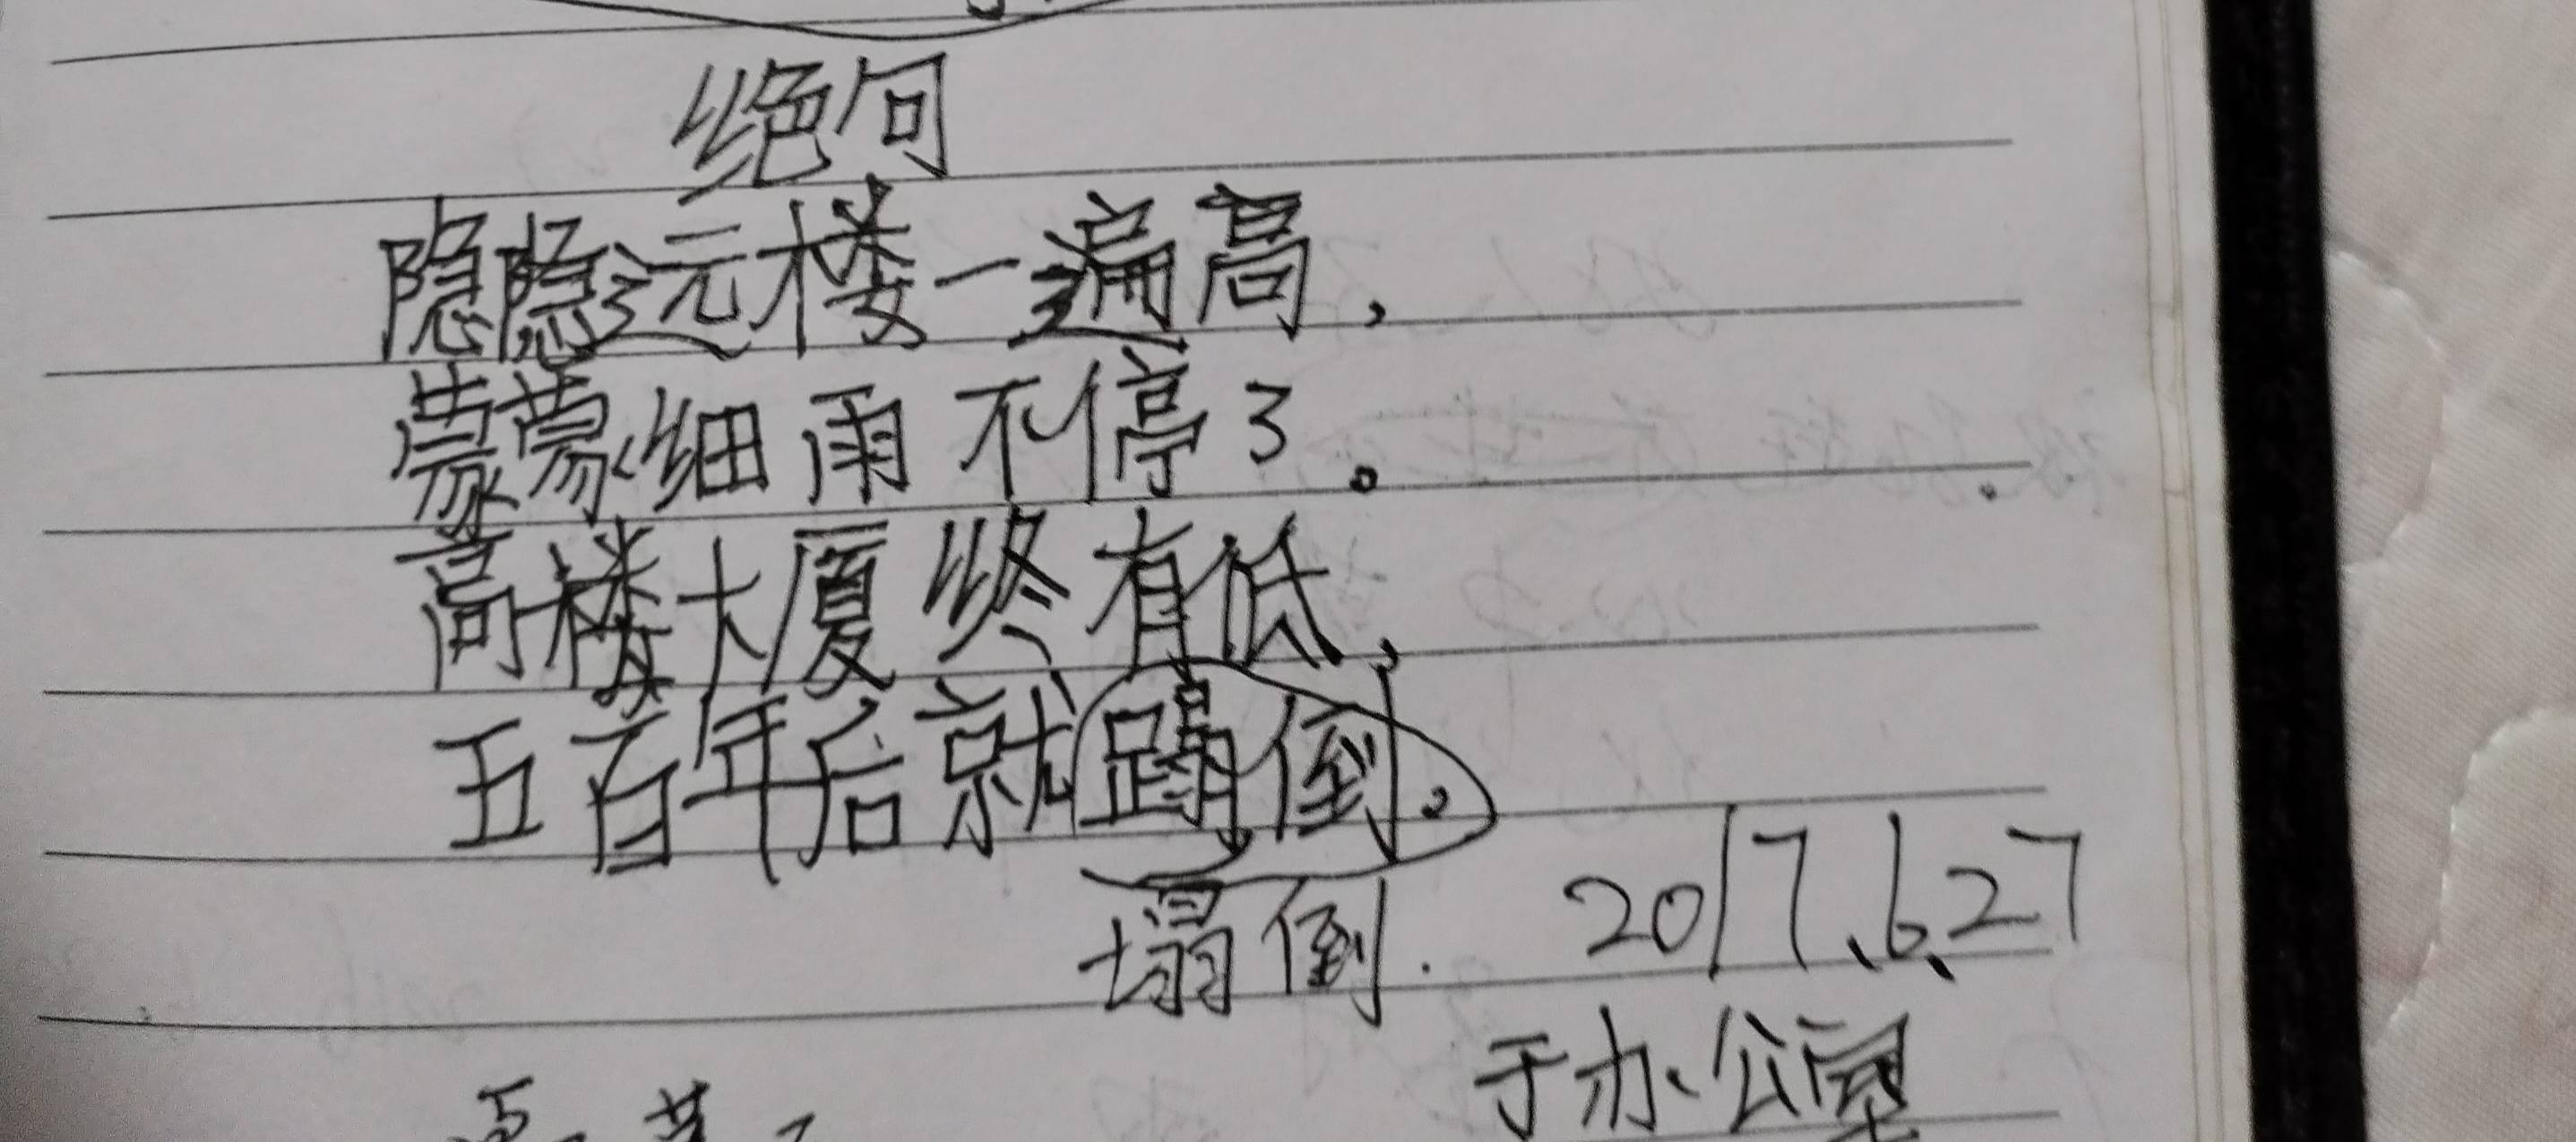 绝句
隐隐远楼一遍高，
蒙蒙细雨不停了。
高楼大厦终有低，
五百年后就蹋倒。
塌倒.
2017、6、27
于办公室